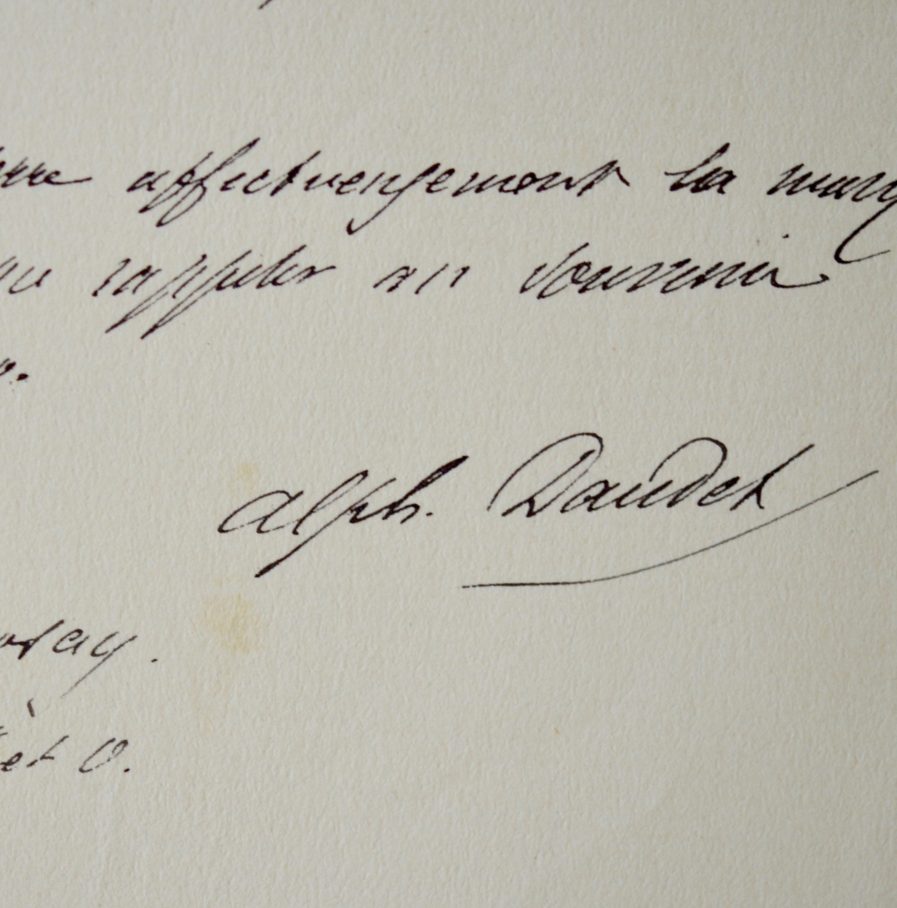 affectueusement la main
rappeler au souvenir
Alph. Daudet
et O.